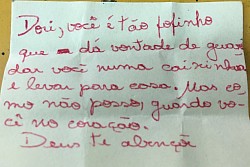 Dori, você é tão fofinho
que dá vontade de guar
dar você numa caixinha
e levar para casa. Mas co
mo não posso, guardo vo-
cê no coração.
Deus te abençoi